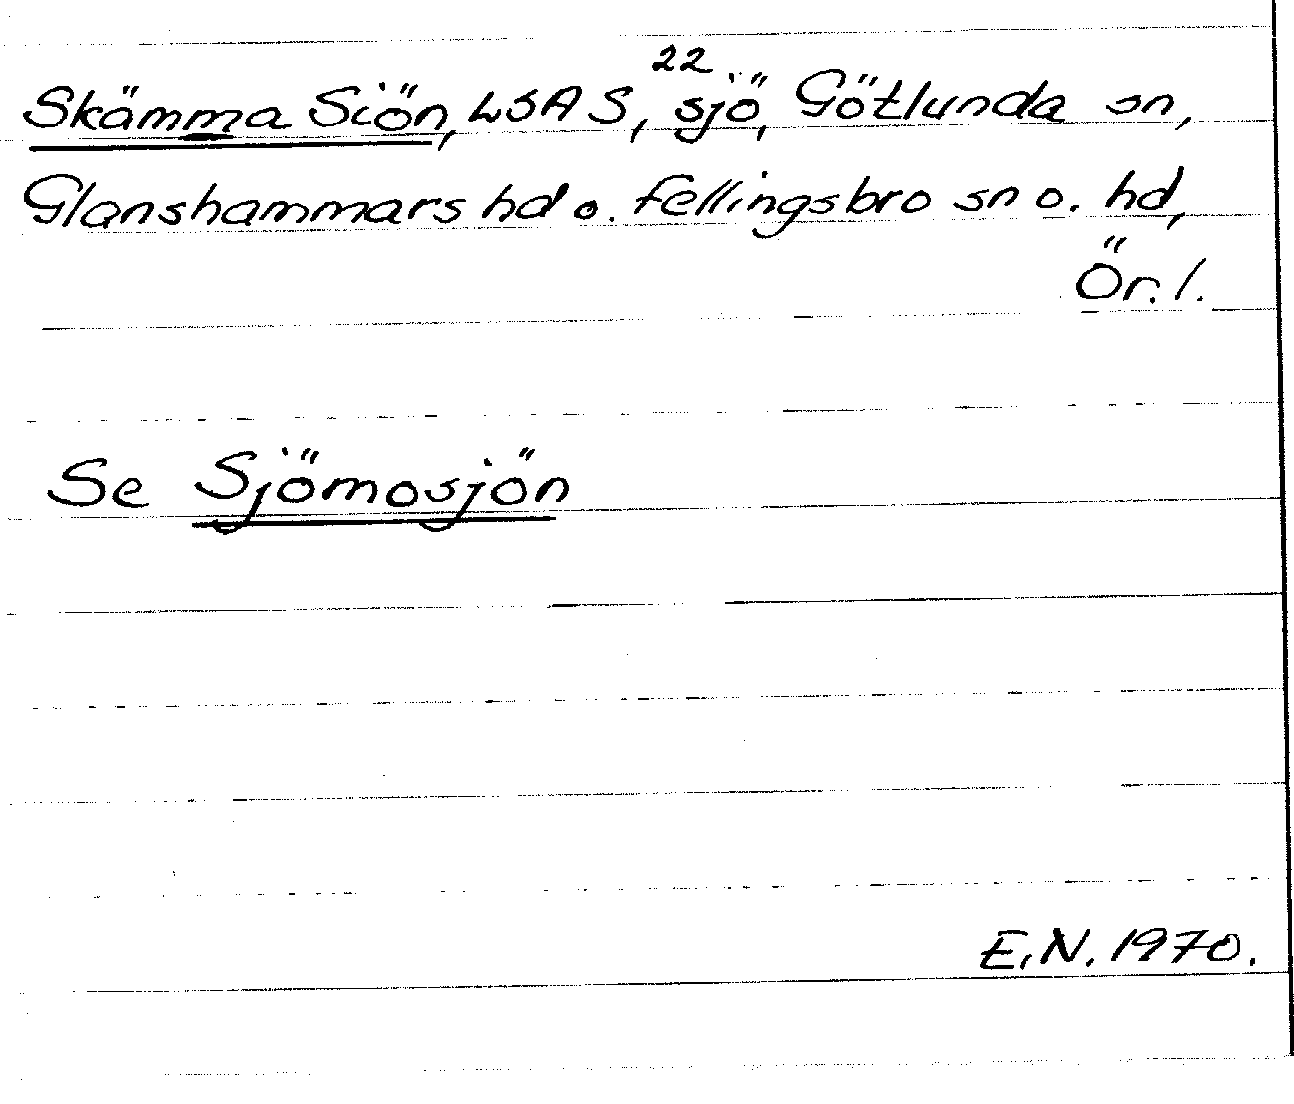 Skämma Siön, LSA S, sjö, 22 Götlunda sn,
Glanshammars hd o. Fellingsbro sn o. hd,
Ör. l.
Se Sjömosjön
E.N. 1970.